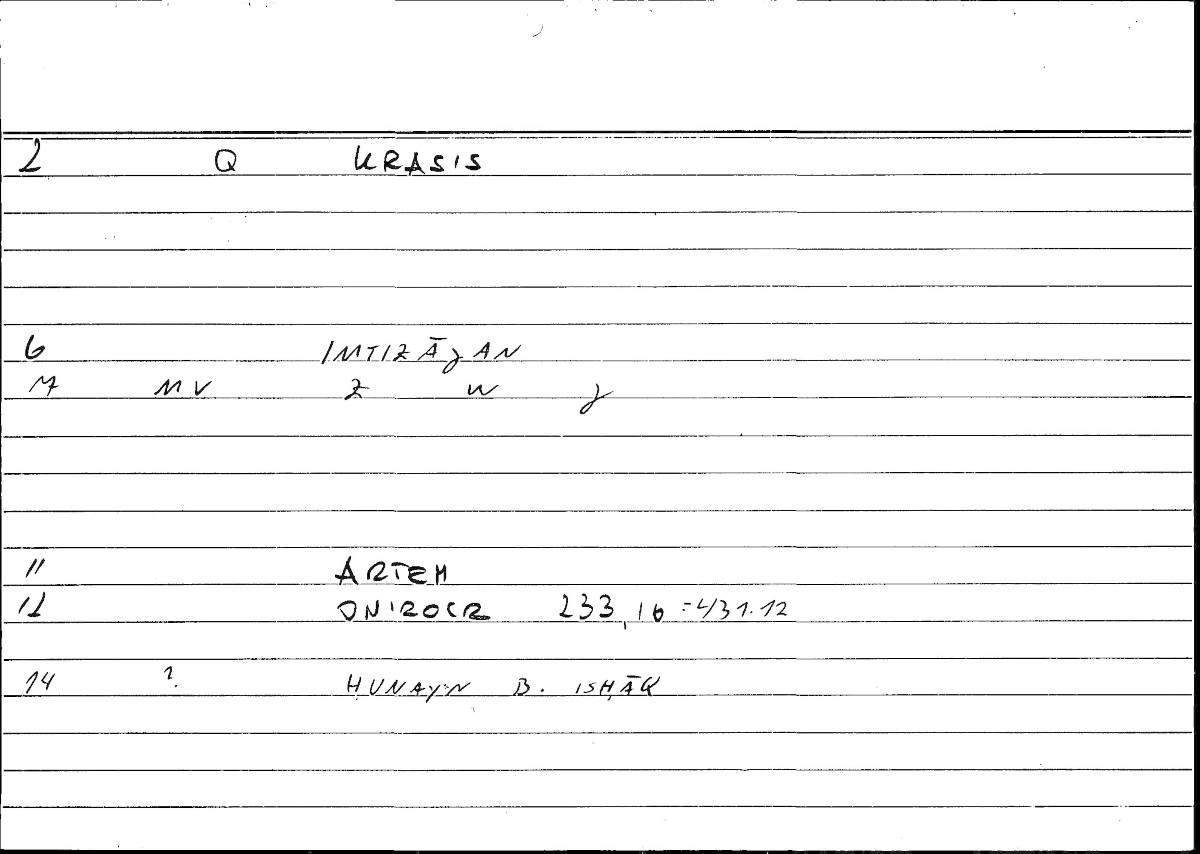 2 Q KRASIS
6 IMTIZĀJAN
7 MV Z W J
11 ARTEM
12 ONIROCR 233,16 =431.12
14 ? ḤUNAYN B. ISḤĀQ